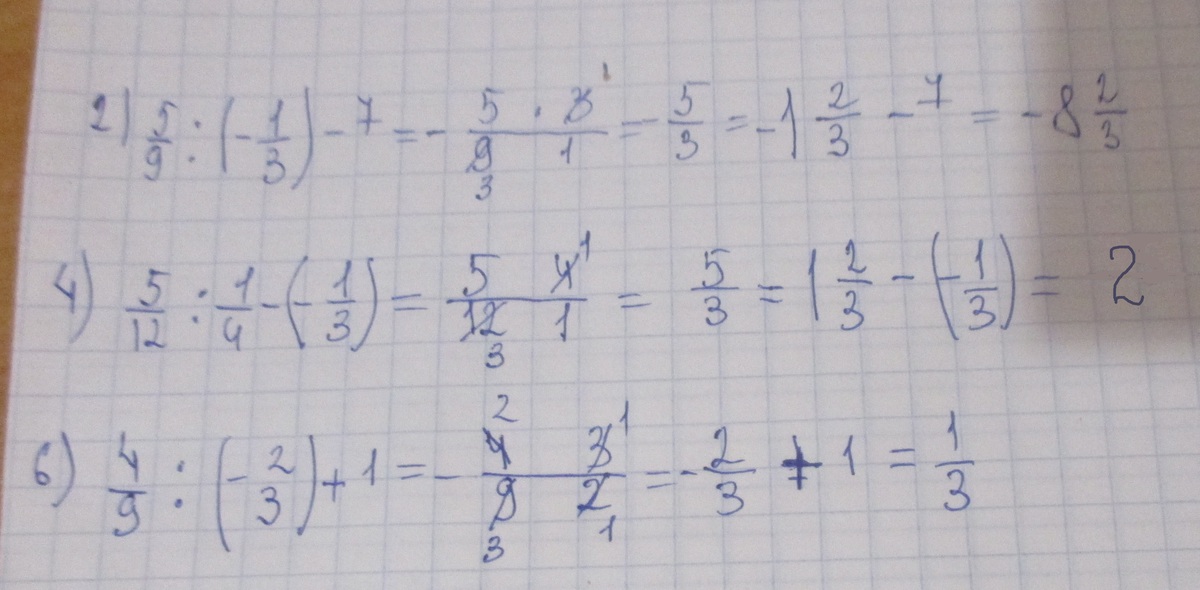 2) 5/9 : (-1/3) - 7 = - 5 · 3 1 / 9 3 1 = - 5/3 = -1 2/3 - 7 = -8 2/3
4) 5/12 : 1/4 - (-1/3) = 5 4 1 / 12 3 1 = 5/3 = 1 2/3 - (-1/3) = 2
6) 4/9 : (-2/3) + 1 = - 4 2 3 1 / 9 3 2 1 = - 2/3 + 1 = 1/3